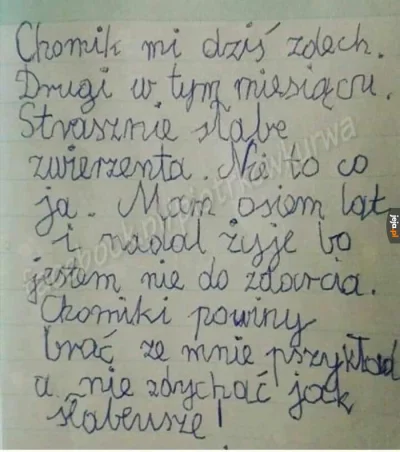 Chomik mi dziś zdech.
Drugi w tym miesiącu.
Strasznie słabe
zwierzenta. Nie to co
ja. Mam osiem lat
i nadal żyje bo
jestem nie do zdarcia.
Chomiki powiny
brać ze mnie pszykład
a nie zdychać jak
słabeusze!
jeja.pl